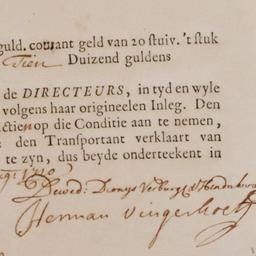 guld. courant geld van 20 stuiv. 't stuk
Tien Duizend guldens
de DIRECTEURS, in tyd en wyle
volgens haar origineelen Inleg. Den
ctien op die Conditie aan te nemen,
den Transportant verklaart van
te zyn, dus beyde onderteekent in
1720
De Wed: Dionys Verburgg
Herman Vingerhoet